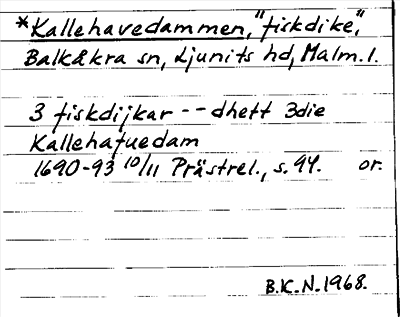 *Kallehavedammen, "fiskdike",
Balkåkra sn, Ljunits hd, Malm. l.
3 fiskdijkar -- dhett 3die
Kallehafuedam
1690-93 10/11 Prästrel., s. 94. or.
B.K.N. 1968.